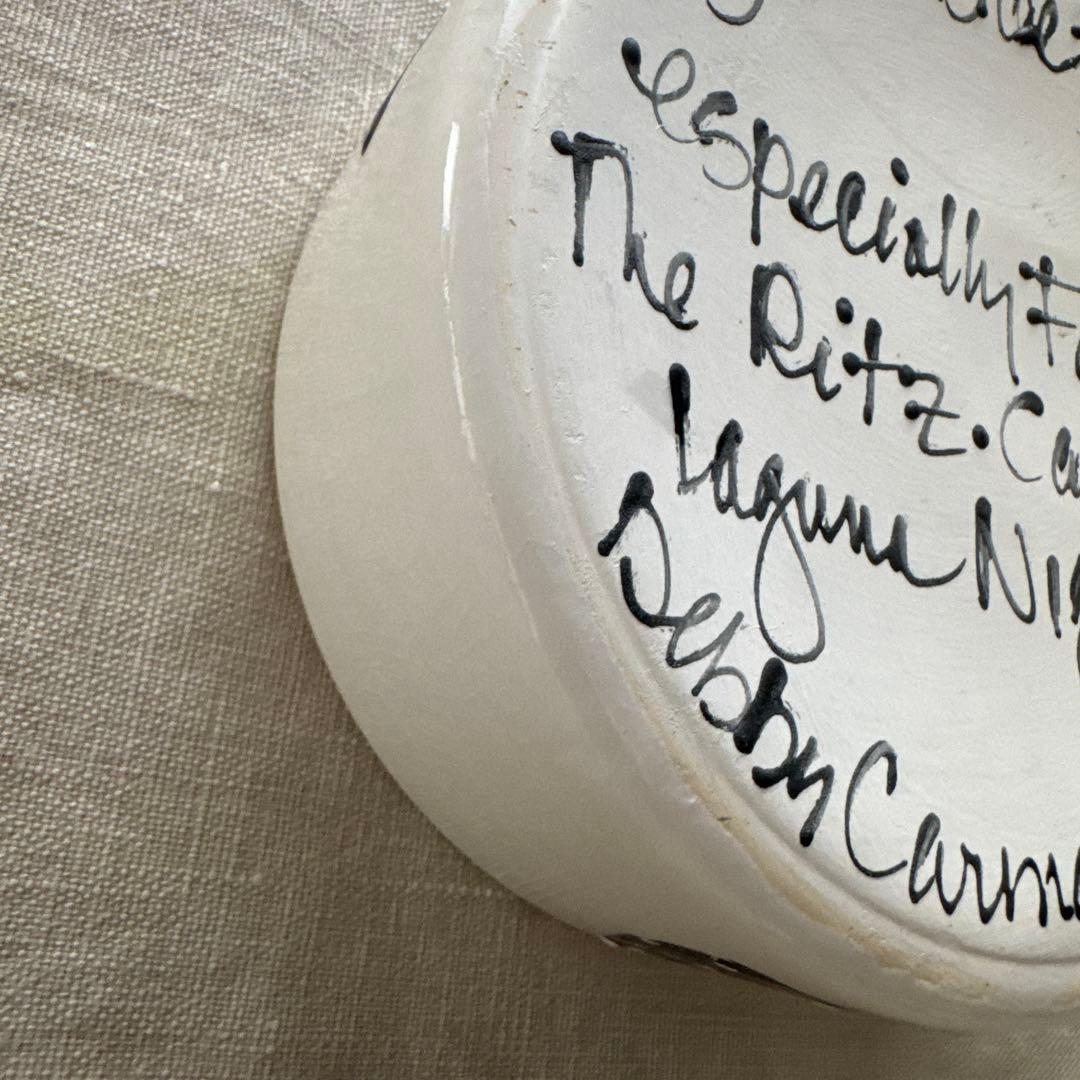 especially F
The Ritz. Ca
Laguna Nig
Debby Carm